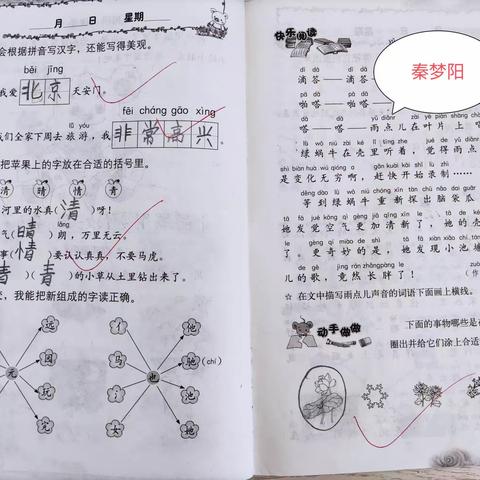 月 日 星期
会根据拼音写汉字，还能写得美观。
běi jīng
我爱 北京 天安门。
fēi cháng gāo xìng
lǚ yóu
我们全家下周去旅游，我 非常高兴 。
把苹果上的字放在合适的括号里。
清 晴 情 青
河里的水真（清）呀！
气（晴）朗，万里无云。
事（情）要认认真真，不要马虎。
青（青）的小草从土里钻出来了。
我能把新组成的字读正确。
远
园
玩
完
元
亻
马
氵
女
也
他
驰（chí）
池
她
快乐阅读
秦梦阳
dī dā dī dā
滴答——滴答——
pā dā pā dā
啪嗒——啪嗒——
嗒——嗒——雨点儿在叶片上
绿蜗牛在壳里听着，觉得雨点
shì biàn huà wú qióng a gǎn kuài kāi shǐ lù zhì
是变化无穷啊，赶快开始录制……
děng dào lǜ wō niú chóng xīn tàn chū nǎo dai guār
等到绿蜗牛重新探出脑袋瓜
她发觉空气更加清新了，她的壳
了。更奇妙的是，她发现小池塘
儿的歌，竟然长胖了！
☆ 在文中描写雨点儿声音的词语下面画上横线。
动手做做
下面的事物哪些是
圈出并给它们涂上合适